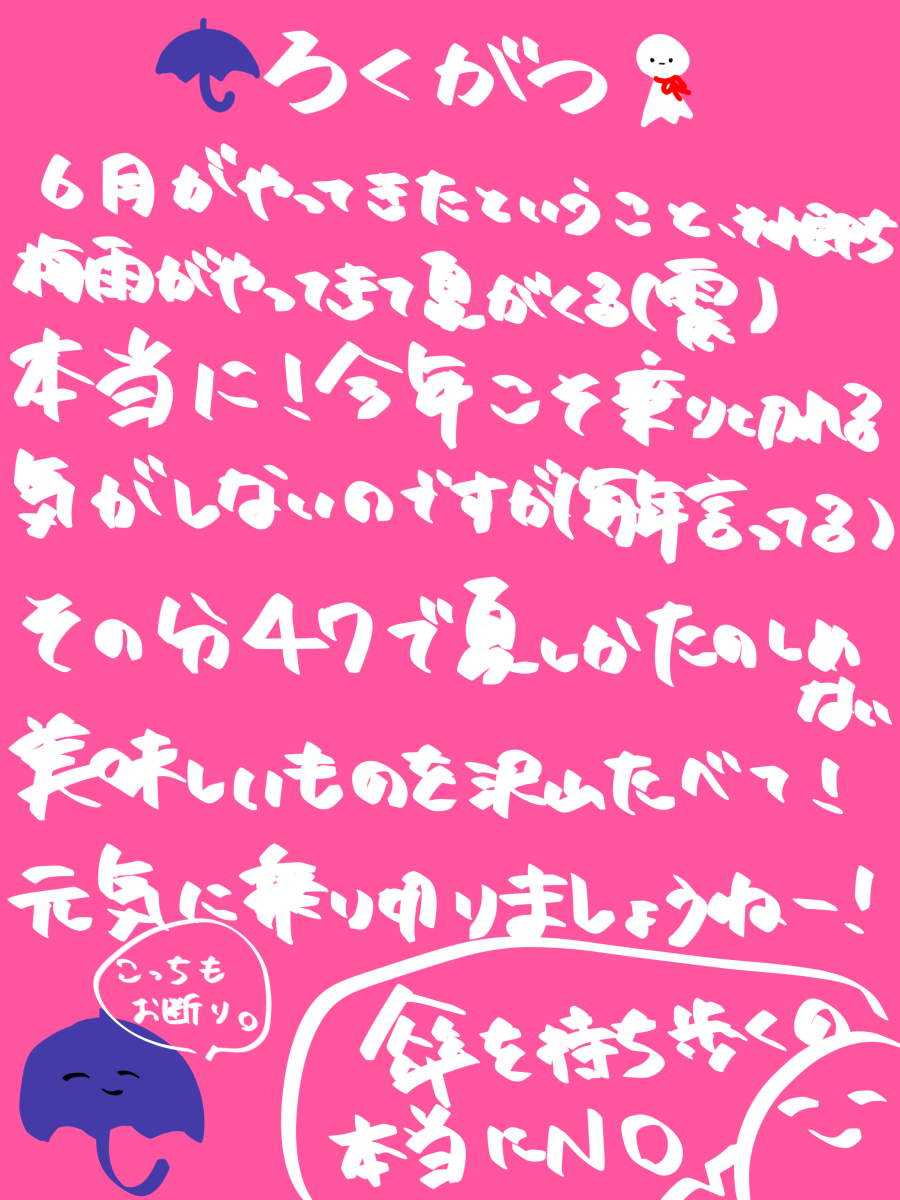 ろくがつ
6月がやってきたということ、それ即ち
梅雨がやってきて夏がくる(震)
本当に!今年こそ乗り切れる
気がしないのですが(毎年言ってる)
その分47で夏しかたのしめ
ない
美味しいものを沢山たべて!
元気に乗りゆりましょうねー!
こっちも
お断り。
傘を持ち歩くの
本当にNO